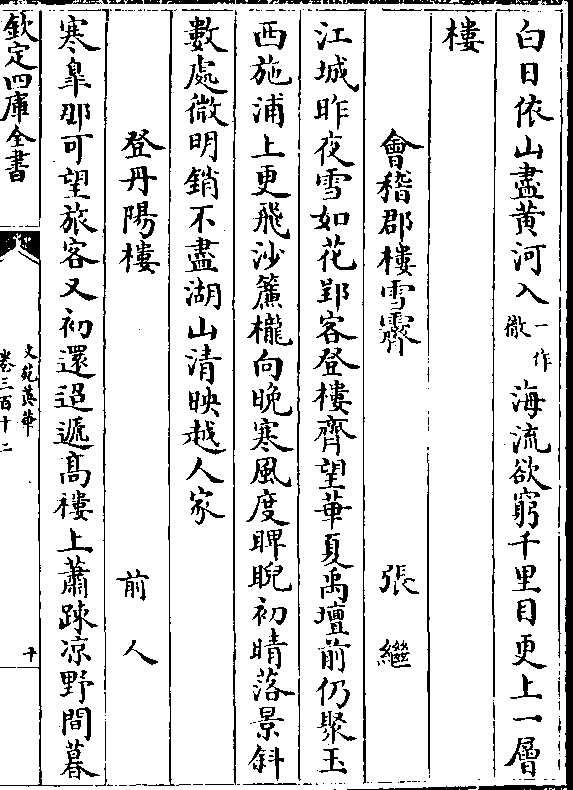 白日依山盡黄河入一作徹海流欲窮千里目更上一層
樓
會稽郡樓雪霽 張繼
江城昨夜雪如花郢客登樓齊望華夏禹壇前仍聚玉
西施浦上更飛沙簾櫳向晚寒風度睥睨初晴落景斜
數處微明銷不盡湖山清映越人家
登丹陽樓 前人
寒臯那可望旅客又初還迢遞髙樓上蕭踈凉野間暮
欽定四庫全書
文苑英華
卷三百十二
十